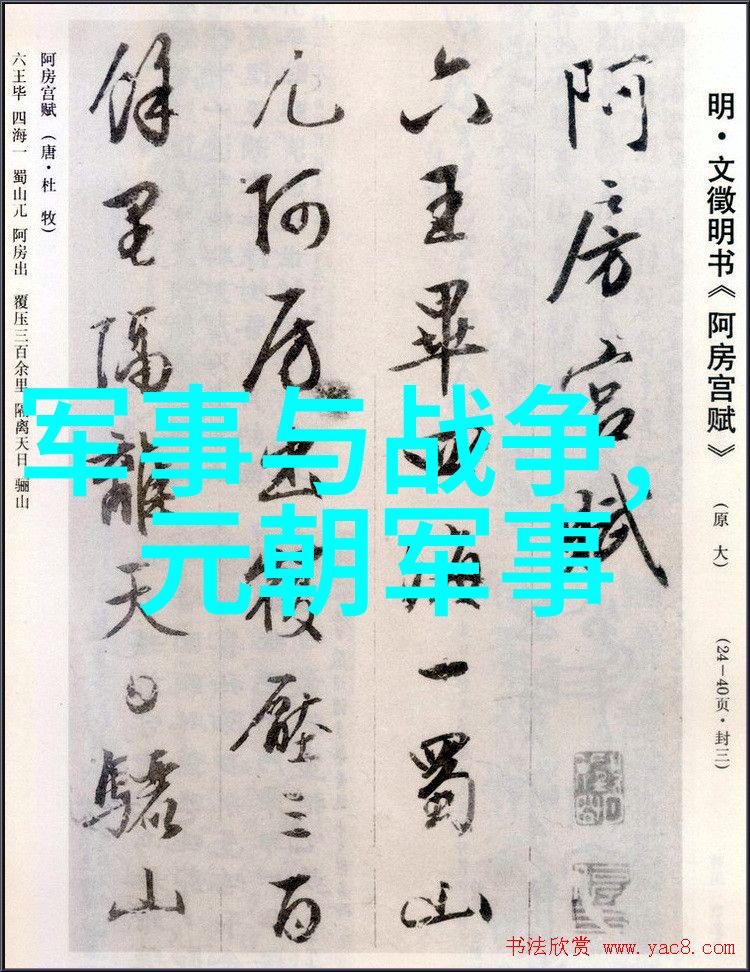 明·文徵明书《阿房宫赋》 (原大) (24—40页·封三)
阿房宫赋
六王畢四海一蜀山
兀阿房出覆壓三百
餘里隔離天日驪山
阿房宫赋 (唐·杜 牧)
六王毕 四海一 蜀山兀 阿房出 覆压三百余里 隔离天日 骊山
军事与战争,
元朝军事
书法欣赏 www.yac8.com